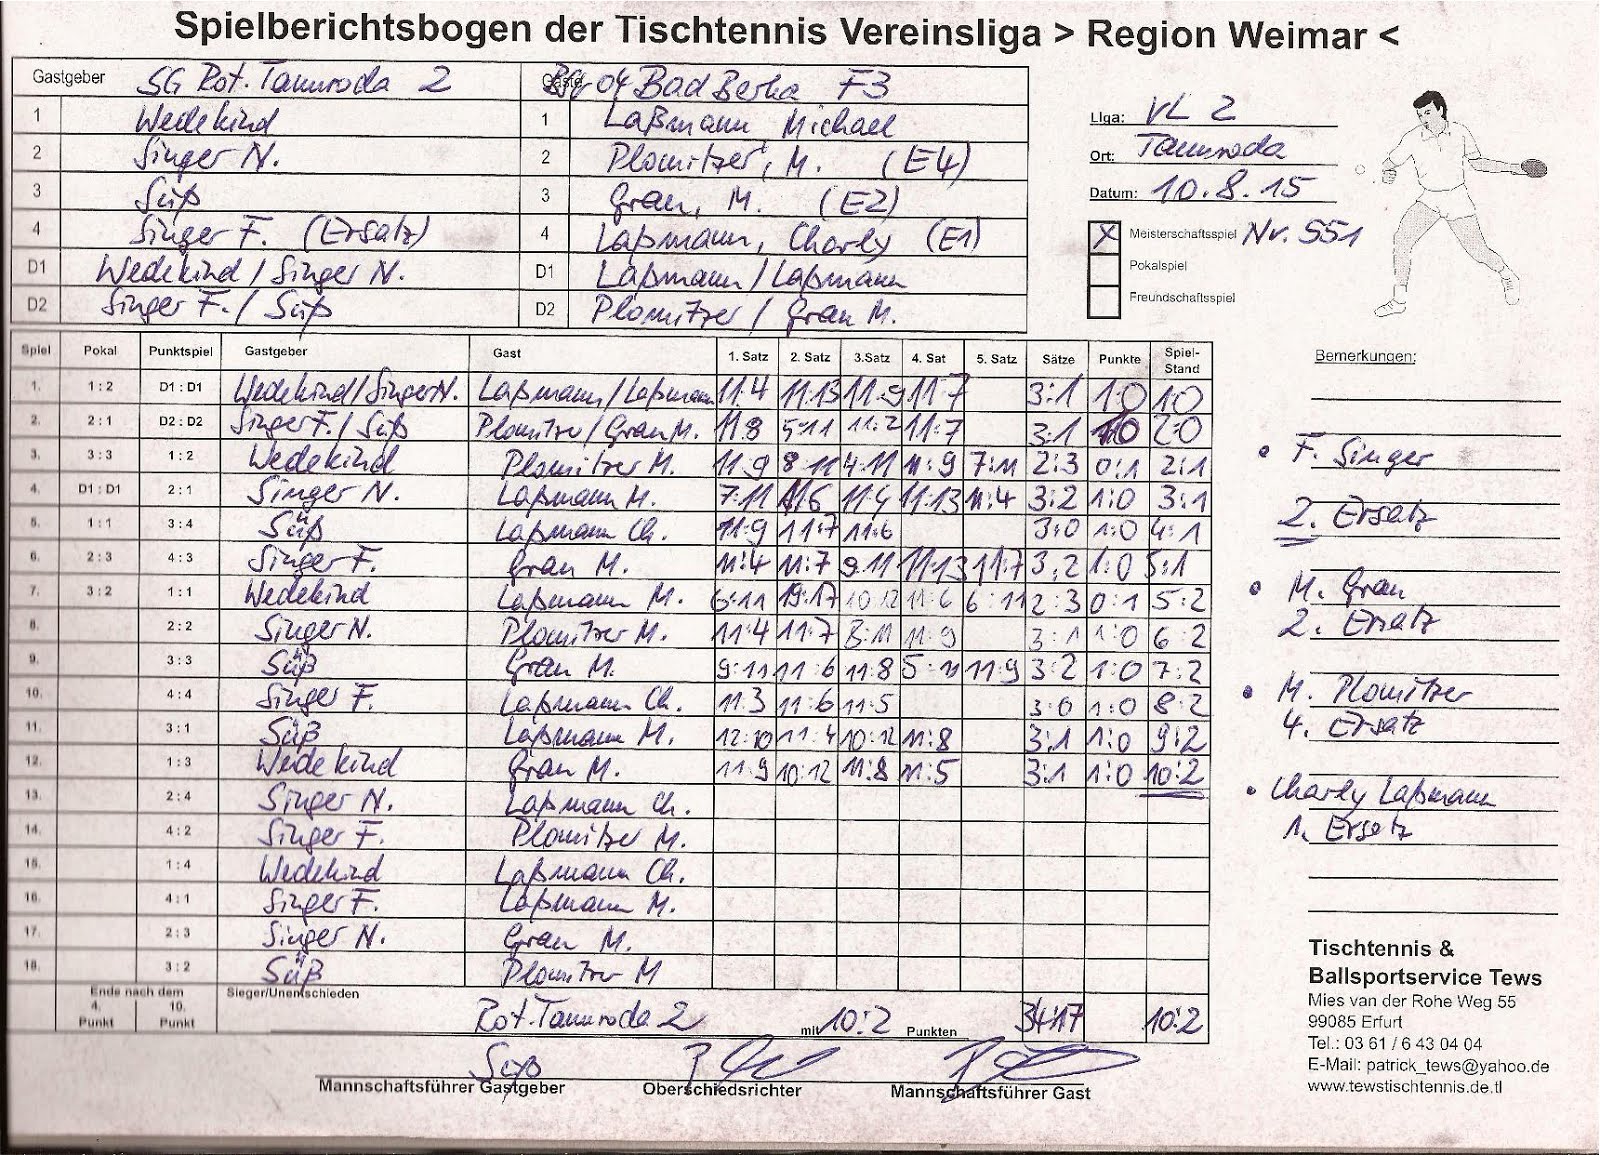 Spielberichtsbogen der Tischtennis Vereinsliga > Region Weimar <
Gastgeber SG Rot. Tannroda 2 Gäste BSG 04 Bad Berka F3
1 Wedekind 1 Laßmann Michael
2 Singer N. 2 Plomitzer, M. (E4)
3 Süß 3 Gran, M. (E2)
4 Singer F. (Ersatz) 4 Laßmann, Charly (E1)
D1 Wedekind / Singer N. D1 Laßmann / Laßmann
D2 Singer F. / Süß D2 Plomitzer / Gran M.
Liga: VL 2
Ort: Tannroda
Datum: 10.8.15
X Meisterschaftsspiel Nr. 551
Pokalspiel
Freundschaftsspiel
Spiel Pokal Punktspiel Gastgeber Gast 1. Satz 2. Satz 3.Satz 4. Sat 5. Satz Sätze Punkte Spiel-Stand
1. 1 : 2 D1 : D1 Wedekind/Singer N. Laßmann/Laßmann 11:4 11:13 11:9 11:7 3:1 1:0 1:0
2. 2 : 1 D2 : D2 Singer F./Süß Plomitzer/Gran M. 11:8 5:11 11:2 11:7 3:1 1:0 2:0
3. 3 : 3 1 : 2 Wedekind Plomitzer M. 11:9 8:11 4:11 11:9 7:11 2:3 0:1 2:1
4. D1 : D1 2 : 1 Singer N. Laßmann M. 7:11 11:6 11:4 11:13 11:4 3:2 1:0 3:1
5. 1 : 1 3 : 4 Süß Laßmann Ch. 11:9 11:7 11:6 3:0 1:0 4:1
6. 2 : 3 4 : 3 Singer F. Gran M. 11:4 11:7 9:11 11:13 11:7 3:2 1:0 5:1
7. 3 : 2 1 : 1 Wedekind Laßmann M. 6:11 19:17 10:12 11:6 6:11 2:3 0:1 5:2
8. 2 : 2 Singer N. Plomitzer M. 11:4 11:7 8:11 11:9 3:1 1:0 6:2
9. 3 : 3 Süß Gran M. 9:11 11:6 11:8 5:11 11:9 3:2 1:0 7:2
10. 4 : 4 Singer F. Laßmann Ch. 11:3 11:6 11:5 3:0 1:0 8:2
11. 3 : 1 Süß Laßmann M. 12:10 11:4 10:12 11:8 3:1 1:0 9:2
12. 1 : 3 Wedekind Gran M. 11:9 10:12 11:8 11:5 3:1 1:0 10:2
13. 2 : 4 Singer N. Laßmann Ch.
14. 4 : 2 Singer F. Plomitzer M.
15. 1 : 4 Wedekind Laßmann Ch.
16. 4 : 1 Singer F. Laßmann M.
17. 2 : 3 Singer N. Gran M.
18. 3 : 2 Süß Plomitzer M
Ende nach dem Sieger/Unentschieden
4. 10. Rot. Tannroda 2 mit 10:2 Punkten 34:17 10:2
Punkt Punkt
Süß
Mannschaftsführer Gastgeber Oberschiedsrichter Mannschaftsführer Gast
Bemerkungen:
• F. Singer
2. Ersatz
• M. Gran
2. Ersatz
• M. Plomitzer
4. Ersatz
• Charly Laßmann
1. Ersatz
Tischtennis &
Ballsportservice Tews
Mies van der Rohe Weg 55
99085 Erfurt
Tel.: 03 61 / 6 43 04 04
E-Mail: patrick_tews@yahoo.de
www.tewstischtennis.de.tl